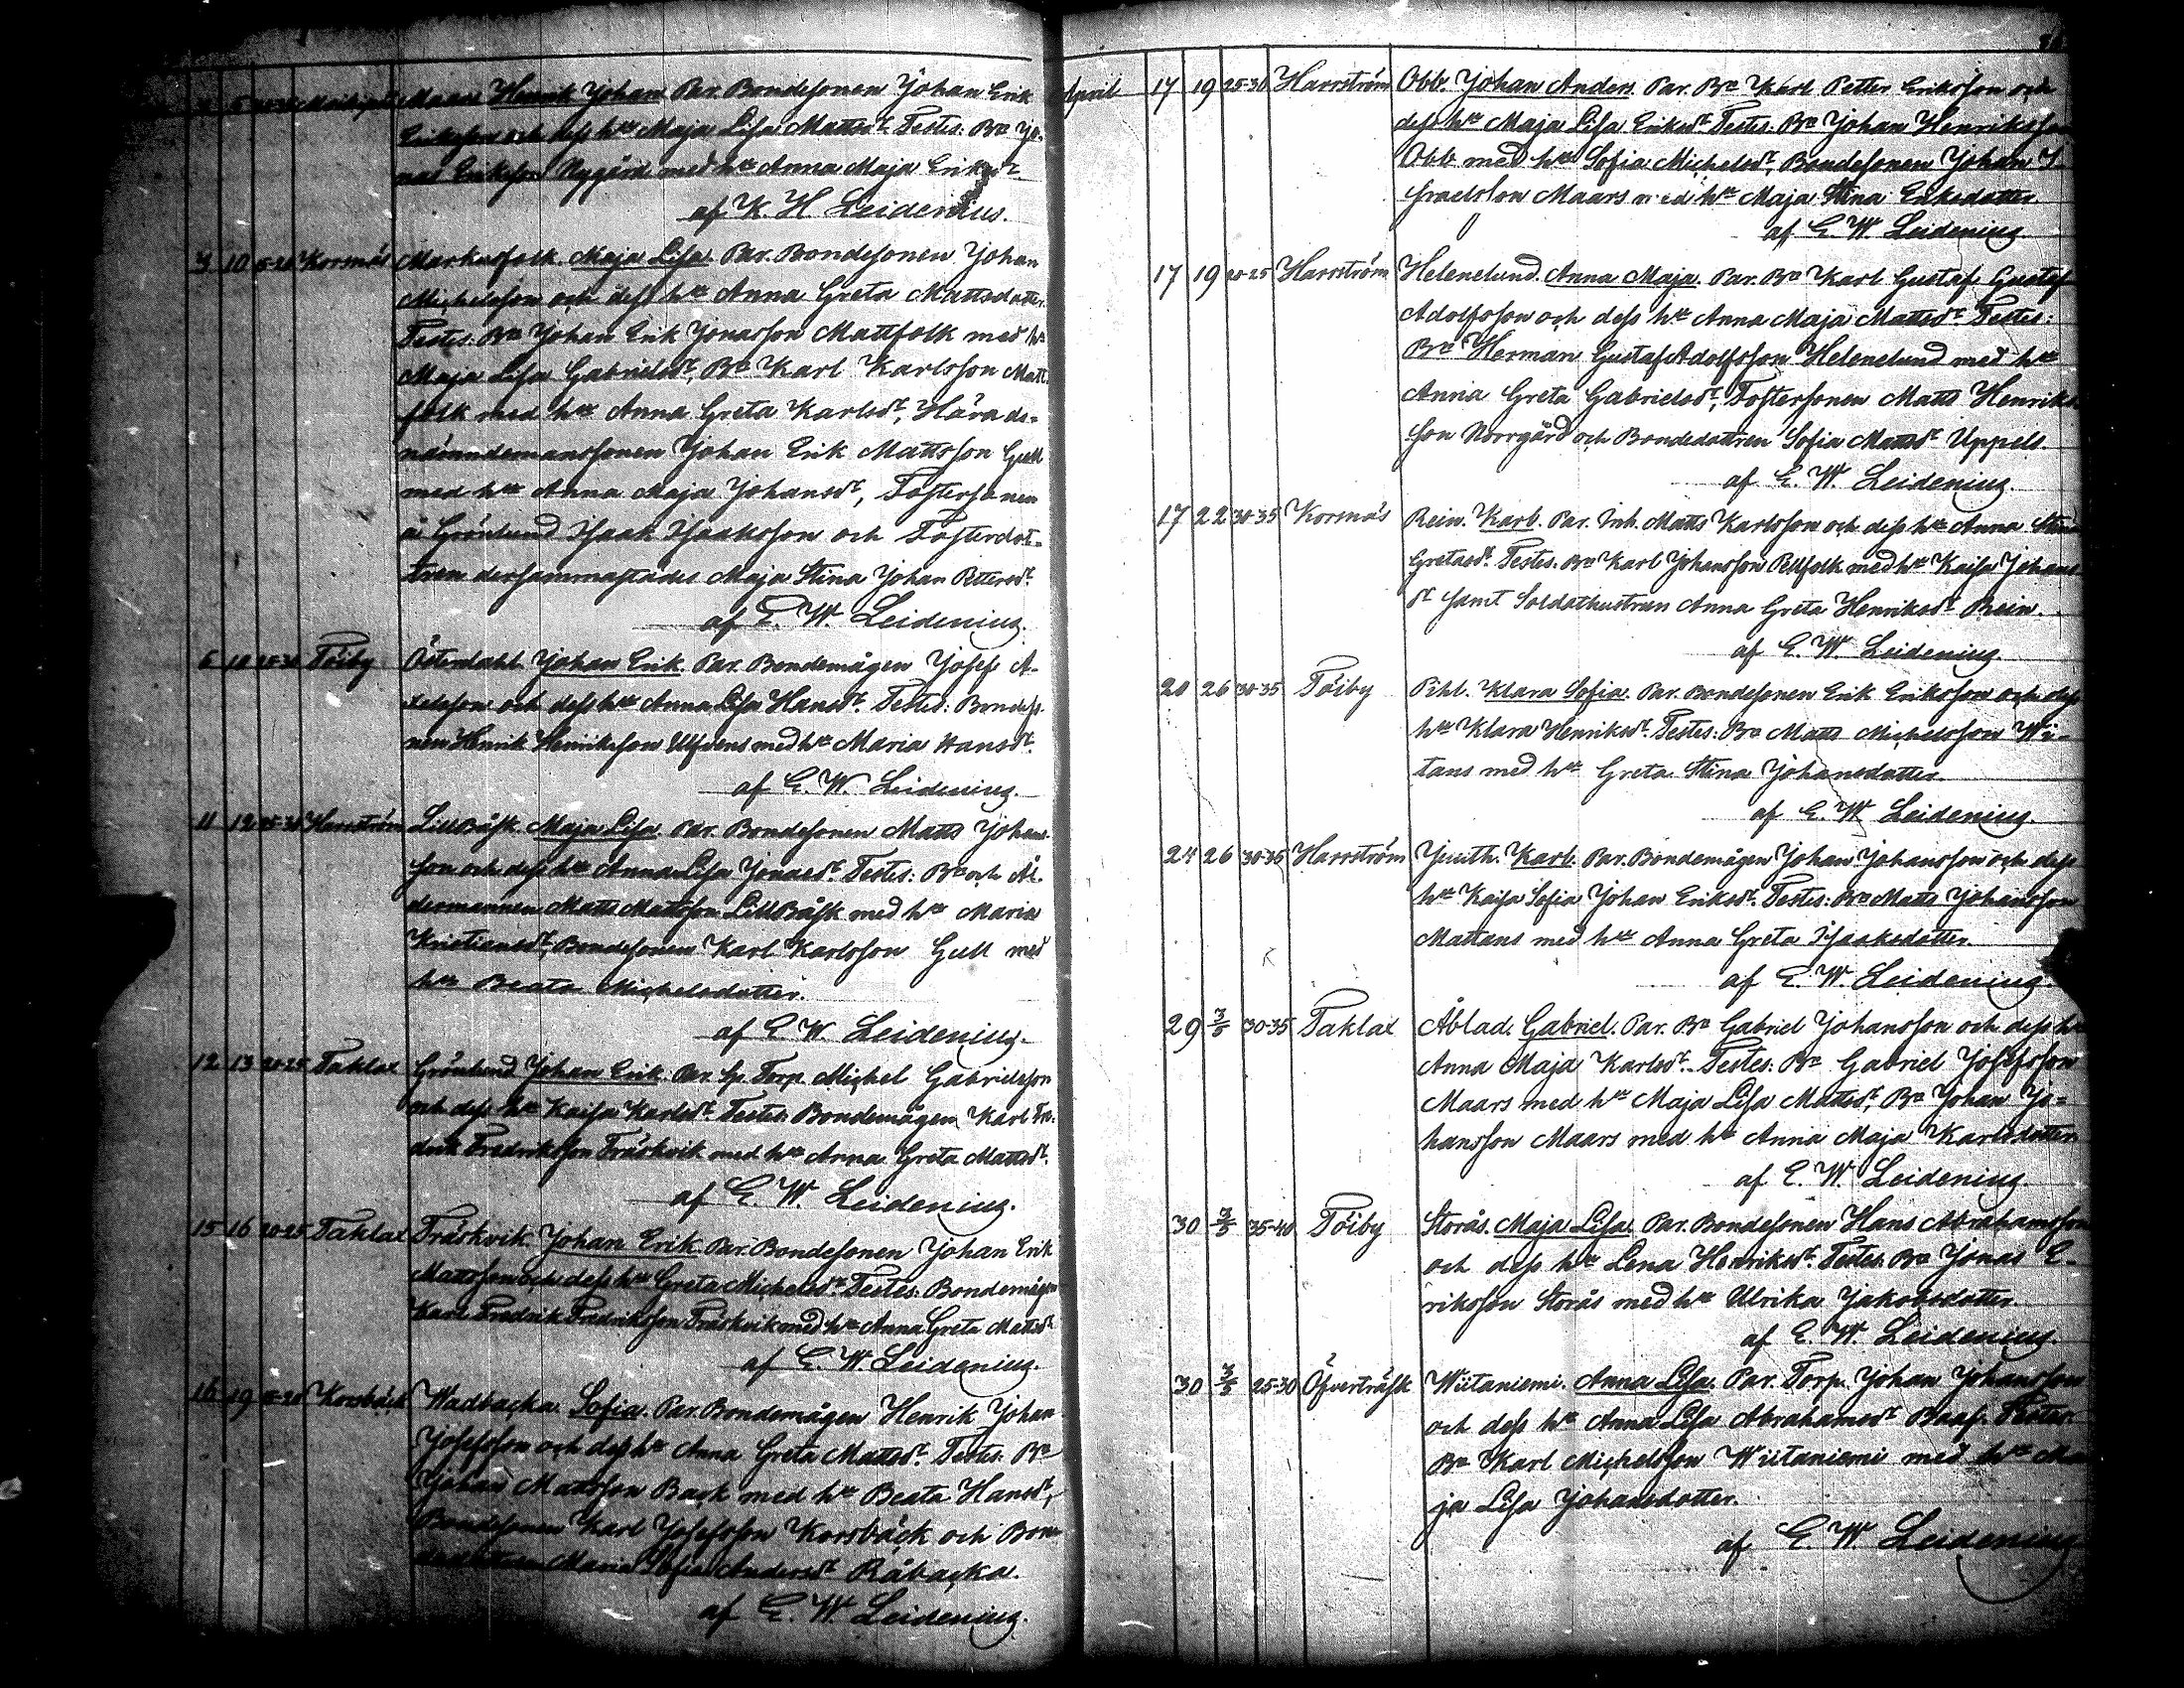 Maars Henrik Johan Par. Bondesonen Johan Erik
Eriksson och dess h:u Maja Lisa Mattsd:r Testes: B:n Jo-
nas Eriksson Nygård med h:u Anna Maja Eriksd:r
af K. H Leidenius.
3 10 15-20 Korsnäs Markusfolk. Maja Lisa. Par. Bondesonen Johan
Michelsson och dess h:u Anna Greta Mattsdotter
Testes. B:n Johan Erik Jonasson Mattfolk med h:u
Maja Lisa Gabrielsd:r, B:n Karl Karlsson Matt
folk med h:u Anna Greta Karlsd:r, Härads-
nämndemanssonen Johan Erik Mattsson Gull
med h:u Anna Maja Johansd:r, Fostersonen
å Grönlund Isaak Isaaksson och Fosterdot-
tren dersammastädes Maja Stina Johan Pettersd:r
af E. W. Leidenius.
6 10 25-30 Töjby Österdahl. Johan Erik. Par. Bondemågen Josef A-
xelsson och dess h:u Anna Lisa Hansd:r Testes: Bondeso
nen Henrik Henriksson Ulfvens med h:u Maria Hansd:r
af E. W. Leidenius.
11 12 25-30 Harrström LillBåsk. Maja Lisa. Par. Bondesonen Matts Johans
son och dess h:u Anna Lisa Jonasd:r Testes: B:n och Ål-
dermannen Matts Mattsson LillBåsk med h:u Maria
Kristiansd:r, Bondesonen Karl Karlsson Gull med
h:u Beata Michelsdotter.
af E. W. Leidenius.
12 13 20-25 Taklax Grönlund Johan Erik. Par. Sp. Torp. Michel Gabrielsson
och dess h:u Kaisa Karlsd:r Testes: Bondemågen Karl Fre-
drik Fredriksson Träskvik med h:u Anna Greta Mattsd:r
af E. W. Leidenius.
15 16 20-25 Taklax Träskvik Johan Erik Par. Bondesonen Johan Erik
Mattsson och dess h:u Greta Michelsd:r Testes: Bondemågen
Karl Fredrik Fredriksson Träskvik med h:u Anna Greta Mattsd:r
af E. W. Leidenius.
16 19 15-20 Korsbäck Wadbacka Sofia Par. Bondemågen Henrik Johan
Josefsson och dess h:u Anna Greta Mattsd:r Testes. B:n
Johan Mattsson Back med h:u Beata Hansd:r,
Bondesonen Karl Josefsson Korsbäck och Bon-
dedottren Maria Sofia Andersd:r Råbacka.
af E. W. Leidenius.
April 17 19 25-30 Harrström Obb. Johan Anders. Par. B:n Karl Petter Eriksson och
dess h:u Maja Lisa Eriksd:r Testes: B:n Johan Henriksson
Obb med h:u Sofia Michelsd:r, Bondesonen Johan I-
sraelsson Maars med h:u Maja Stina Eriksdotter
af E. W. Leidenius.
17 19 20-25 Harrström Helenelund. Anna Maja. Par. B:n Karl Gustaf Gustaf
Adolfsson och dess h:u Anna Maja Mattsd:r Testes:
B:n Herman Gustaf Adolfsson Helenelund med h:u
Anna Greta Gabrielsd:r, Fostersonen Matts Henriks
son Norrgård och Bondedottren Sofia Mattsd:r Uppels
af E. W. Leidenius.
17 22 30-35 Korsnäs Rein. Karl. Par. Inh. Matts Karlsson och dess h:u Anna Stina
Gretasd:r Testes. B:n Karl Johansson Pellfolk med h:u Kaisa Johans
d:r samt Soldathustrun Anna Greta Henriksd:r Rein.
af E. W. Leidenius.
20 26 30-35 Töjby Pihl. Klara Sofia. Par. Bondesonen Erik Eriksson och dess
h:u Klara Henriksd:r Testes: B:n Matts Michelsson Wii-
tans med h:u Greta Stina Johansdotter
af E. W. Leidenius.
24 26 30-35 Harrström Juuth. Karl. Par. Bondemågen Johan Johansson och dess
h:u Kaisa Sofia Johan Eriksd:r Testes: B:n Matts Johansson
Mattans med h:u Anna Greta Isaaksdotter.
af E. W. Leidenius.
29 3/5 30-35 Taklax Åblad. Gabriel. Par. B:n Gabriel Johansson och dess h:u
Anna Maja Karlsd:r. Testes: B:n Gabriel Josefsson
Maars med h:u Maja Lisa Mattsd:r, B:n Johan Jo-
hansson Maars med h:u Anna Maja Karlsdotter
af E. W. Leidenius
30 3/5 35-40 Töjby Storås. Maja Lisa. Par. Bondesonen Hans Abrahamsson
och dess h:u Lena Henriksd:r. Testes. B:n Jonas E-
riksson Storås med h:u Ulrika Jakobsdotter.
af E. W. Leidenius.
30 3/5 25-30 Öfverträsk Wiitaniemi. Anna Lisa. Par. Torp. Johan Johansson
och dess h:u Anna Lisa Abrahamsd:r Baaf. Testes.
B:n Karl Michelsson Wiitaniemi med h:u Ma
ja Lisa Johansdotter.
af E. W. Leidenius